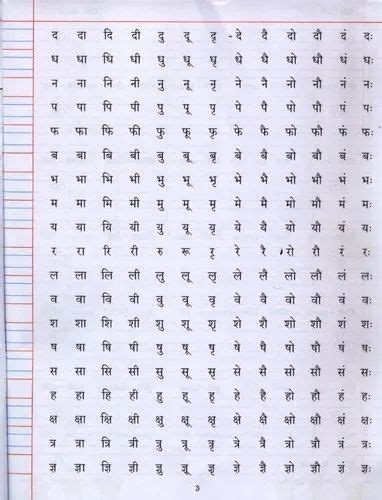 द दा दि दी दु दू दृ - दे दै दो दी दं दः
ध धा धि धी धु धू धृ धे धै धो धौ धं धः
न ना नि नी नु नू नृ ने नै नो नौ नं नः
प पा पि पी पु पू पृ पे पै पो पौ पं पः
फ फा फि फी फु फू फृ फे फै फो फौ फं फः
ब बा बि बी बु बू बृ बे बै बो बौ बं बः
भ भा भि भी भु भू भृ भे भै भो भौ भं भः
म मा मि मी मु मू मृ मे मै मो मौ मं मः
य या यि यी यु यू यृ ये यै यो यौ यं यः
र रा रि री रु रू रृ रे रै रो रौ रं रः
ल ला लि ली लु लू लृ ले लै लो लौ लं लः
व वा वि वी वु वू वृ वे वै वो वौ वं वः
श शा शि शी शु शू शृ शे शै शो शौ शं शः
ष षा षि षी षु षू षृ षे षै षो षौ षं षः
स सा सि सी सु सू सृ से सै सो सौ सं सः
ह हा हि ही हु हू हृ हे है हो हौ हं हः
क्ष क्षा क्षि क्षी क्षु क्षू क्षृ क्षे क्षै क्षो क्षौ क्षं क्षः
त्र त्रा त्रि त्री त्रु त्रू त्रृ त्रे त्रै त्रो त्रौ त्रं त्रः
ज्ञ ज्ञा ज्ञि ज्ञी ज्ञु ज्ञू ज्ञृ ज्ञे ज्ञै ज्ञो ज्ञौ ज्ञं ज्ञः
3